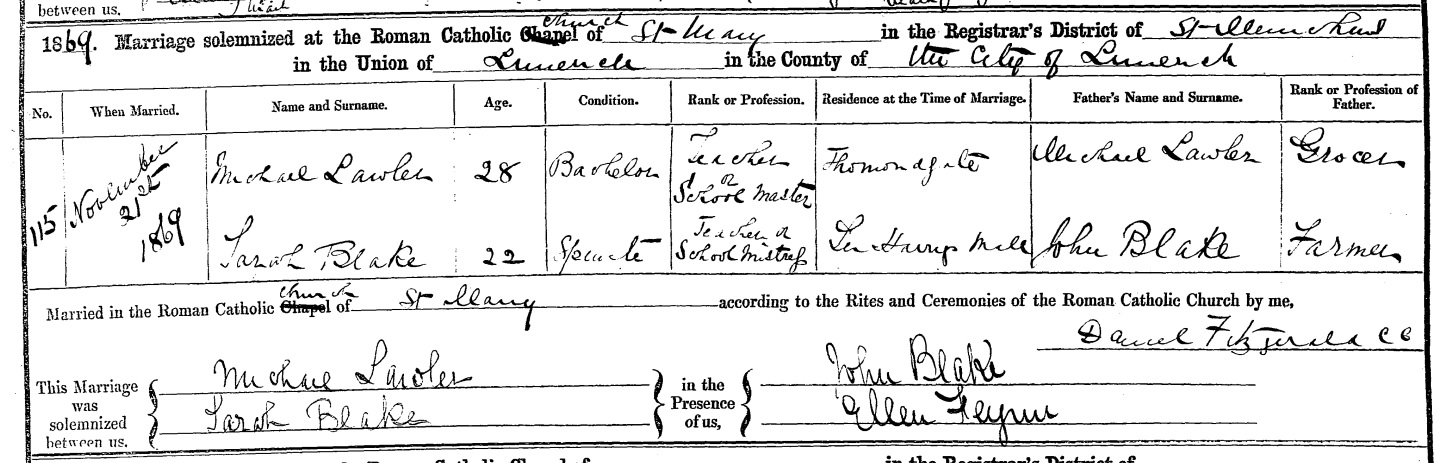 between us.
1869. Marriage solemnized at the Roman Catholic Chapel church of St Mary in the Registrar's District of
in the Union of Limerick in the County of the City of Limerick
No. When Married. Name and Surname. Age. Condition. Rank or Profession. Residence at the Time of Marriage. Father's Name and Surname. Rank or Profession of Father.
115 November 21st 1869 Michael Lawler 28 Bachelor Teacher or School Master Thomondgate Michael Lawler Grocer
Sarah Blake 22 Teacher or School Mistress John Blake Farmer
Married in the Roman Catholic Chapel church of St Mary according to the Rites and Ceremonies of the Roman Catholic Church by me,
Daniel Fitzgerald CC
This Marriage was solemnized between us, Michael Lawler in the Presence of us, John Blake
Sarah Blake Ellen
in the Registrar's District of